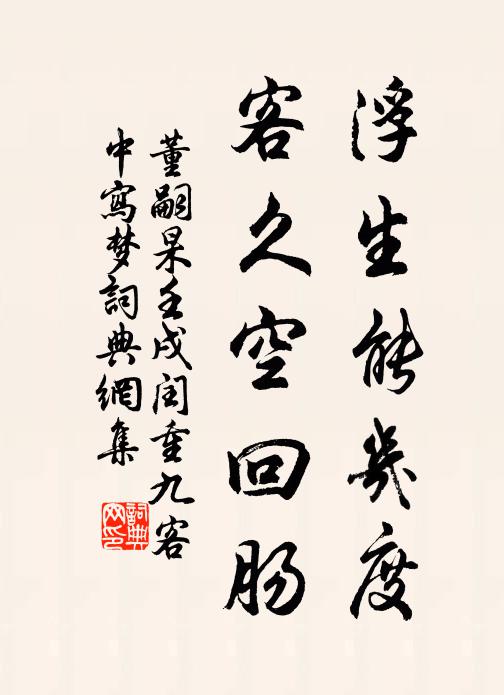 浮生能几度
客久空回肠
董嗣杲壬戌闰重九客
中寫梦詞典網集
詞典网印